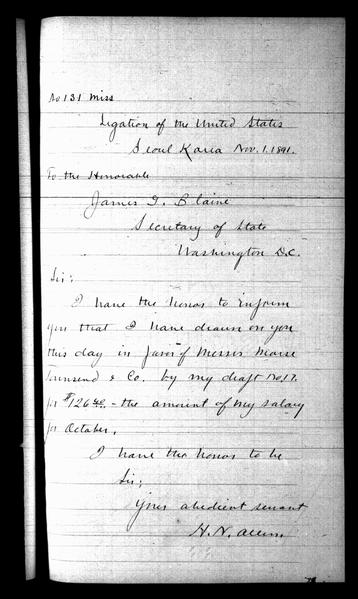 No 131 Miss
Legation of the United States
Seoul Korea Nov. 1. 1891.
To the Honorable
James G. Blaine
Secretary of State
Washington D.C.
Sir:
I have the honor to inform
you that I have drawn on you
this day in favor of Messrs Morse
Townsend & Co. by my draft No. 17.
for $126 40 - the amount of my salary
for October.
I have the honor to be
Sir;
Your obedient servant
H. N. Allen.